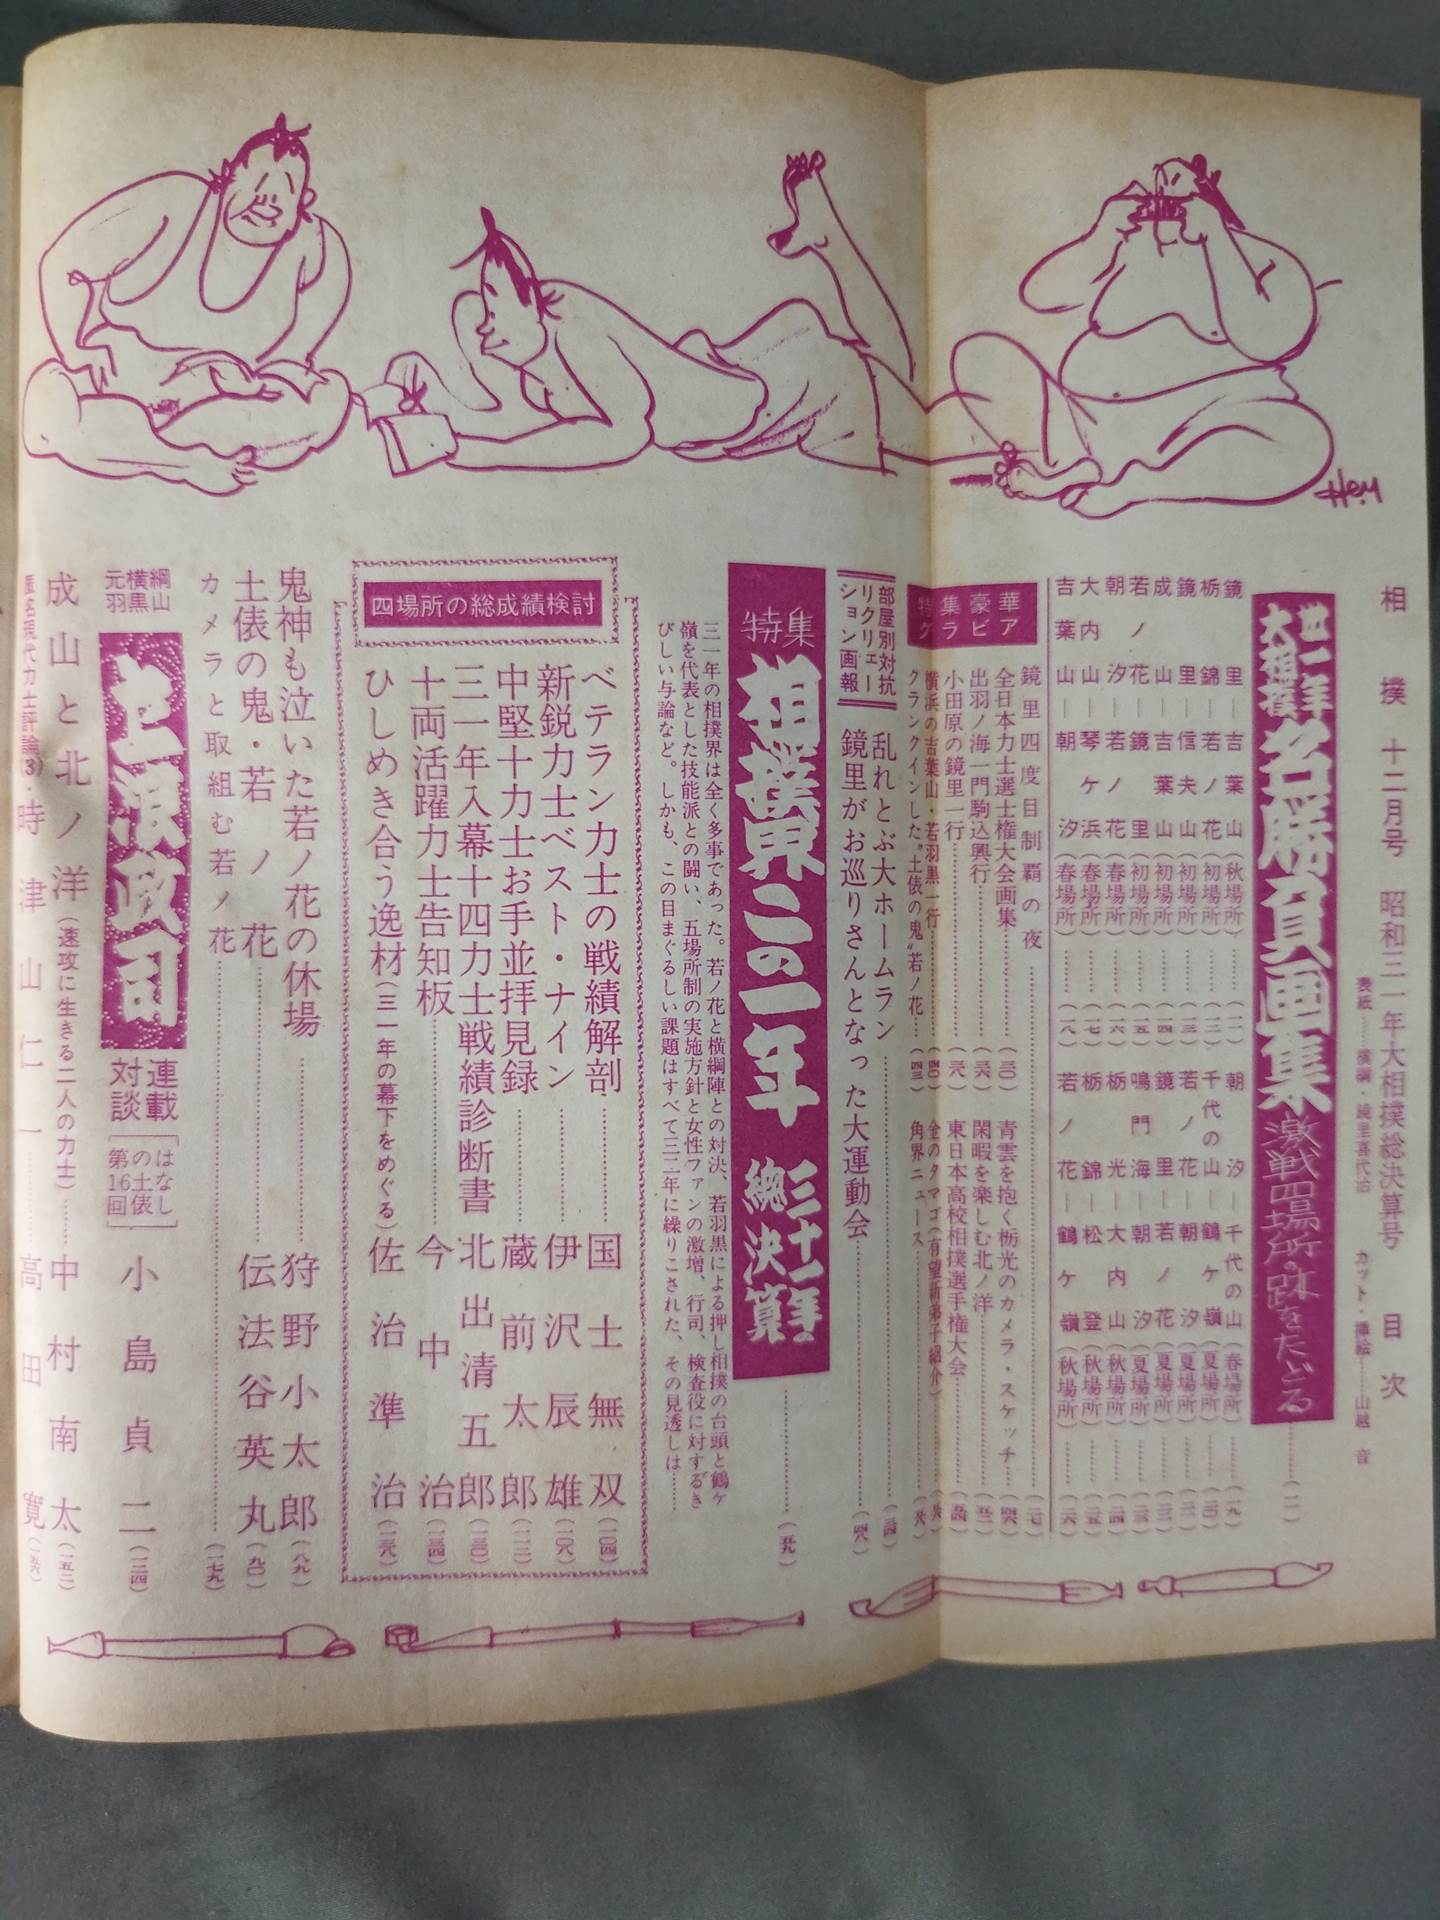 相撲 十二月号 昭和三一年大相撲総決算号 目次
表紙……横綱・鏡里喜代治 カット・挿絵……山越 音
大相撲 名勝負画集 激戦四場所の跡をたどる……(一一)
鏡里―吉葉山(秋場所)……(一一)
栃錦―若ノ花(初場所)……(一二)
鏡里―信夫山(初場所)……(一三)
成山―吉葉山(初場所)……(一四)
若ノ花―鏡里(初場所)……(一五)
朝汐―若ノ花(春場所)……(一六)
大内山―琴ケ浜(春場所)……(一七)
吉葉山―朝汐(春場所)……(一八)
朝汐―千代の山(春場所)……(一九)
千代の山―鶴ケ嶺(夏場所)……(二〇)
若ノ花―朝汐(夏場所)……(二一)
鏡里―若ノ花(夏場所)……(二二)
鳴門海―朝汐(夏場所)……(二三)
栃光―大内山(秋場所)……(二四)
栃錦―松登(秋場所)……(二五)
若ノ花―鶴ケ嶺(秋場所)……(二六)
豪華特集グラビア
鏡里四度目制覇の夜……(二七)
全日本力士選士権大会画集……(三〇)
出羽ノ海一門駒込興行……(三六)
小田原の鏡里一行……(三八)
横浜の吉葉山・若羽黒一行……(四〇)
クランクインした“土俵の鬼”若ノ花……(四三)
青雲を抱く栃光のカメラ・スケッチ……(四六)
閑暇を楽しむ北ノ洋……(五二)
東日本高校相撲選手権大会……(五四)
金のタマゴ(有望新弟子紹介)……
角界ニュース……
部屋別対抗リクリェーション画報
乱れとぶ大ホームラン……(三四)
鏡里がお巡りさんとなった大運動会……(四八)
特集 相撲界この一年 三十一年の総決算……(五九)
三一年の相撲界は全く多事であった。若ノ花と横綱陣との対決、若羽黒による押し相撲の台頭と鶴ケ
嶺を代表とした技能派との闘い、五場所制の実施方針と女性ファンの激増、行司、検査役に対するき
びしい与論など。しかも、この目まぐるしい課題はすべて三二年に繰りこされた、その見透しは……
四場所の総成績検討
ベテラン力士の戦績解剖……国士無双(一〇四)
新鋭力士ベスト・ナイン……伊沢辰雄(一〇八)
中堅十力士お手並拝見録……蔵前太郎(一一二)
三一年入幕十四力士戦績診断書 北出清五郎(一三〇)
十両活躍力士告知板……今中治(一三四)
ひしめき合う逸材(三一年の幕下をめぐる)佐治準治(一三八)
鬼神も泣いた若ノ花の休場……狩野小太郎(八九)
土俵の鬼・若ノ花……伝法谷英丸(九〇)
カメラと取組む若ノ花……(一七九)
元横綱羽黒山 立浪政司 連載対談 [はなしの土俵 第16回] 小島貞二(一三四)
成山と北ノ洋(速攻に生きる二人の力士)……中村南太(一五二)
匿名現代力士評論(3)・時津山仁一……高田寛(一五六)
Hey